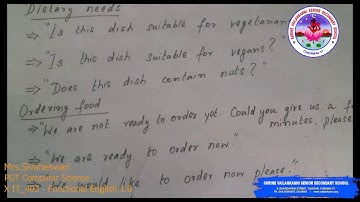 Dietary needs
⇒ "Is this dish suitable for vegetarian
⇒ "Is this dish suitable for vegans?"
⇒ "Does this dish contain nuts?"
Ordering food
⇒ "We are not ready to order yet. Could you give us a f
minutes, please
⇒ "We are ready to order now"
would like to order now please."
Mrs.Sivaneswari
PGT Computer Science
X IT_402 - Functional English 1.0
SHRINE VAILANKANNI SENIOR SECONDARY SCHOOL